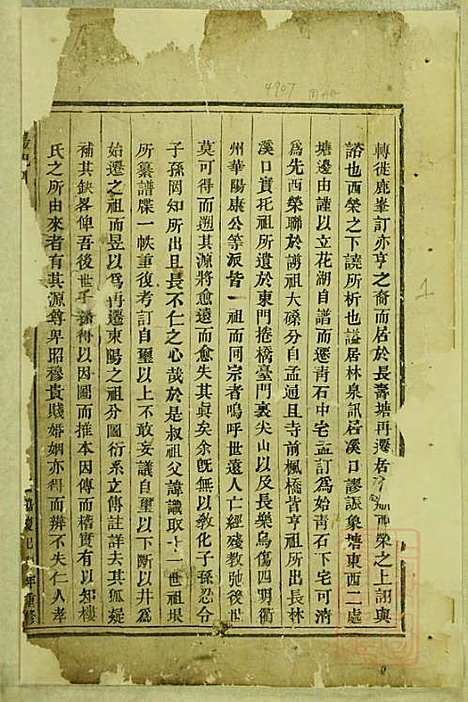 轉徙鹿峯訂亦亨之裔而居於長壽塘再遷居 西榮之上詡與
谽也西榮之下譊所析也謚居林泉訊居溪口謬誫象塘東西二處
塘邊由謹以立花湖自譜而遷青石中宅孟訂爲始青石下宅可清
爲先西榮聯於謗祖大磉分自孟通且寺前楓橋皆亨祖所出長林
溪口實托祖所遺於東門捲橋臺門裏尖山以及長樂烏傷四明衢
州華陽康公等派皆一祖而同宗者嗚呼世遠人亡經殘教弛後世
莫可得而遡其源將愈遠而愈失其眞矣余旣無以教化子孫忍令
子孫罔知所出且長不仁之心哉於是叔祖父諱識取十二世祖垠
所纂譜牒一帙重復考訂自璽以上不敢妄議自璽以下斷以井爲
始遷之祖而昱以爲再遷東陽之祖分圖衍系立傳註詳去其狐疑
補其缺畧俾吾後世子孫得以因圖而推本因傳而稽實有以知棲
氏之所由來者有其源尊卑昭穆貴賤婚姻亦得而辨不失仁人孝
年重修
4907